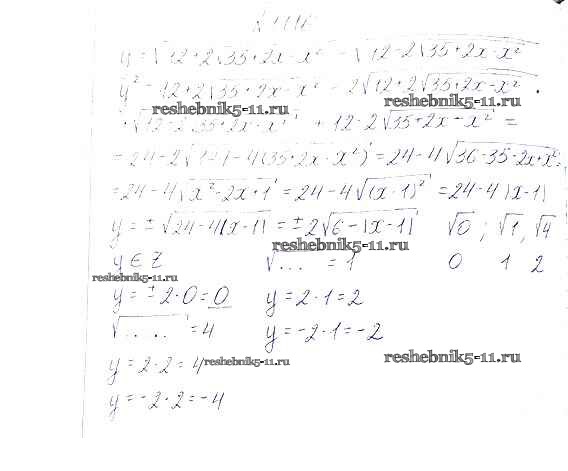 y = √(12+2√(35+2x-x²)) - √(12-2√(35+2x-x²))
y² = 12+2√(35+2x-x²) - 2√(12+2√(35+2x-x²)) ·
reshebnik5-11.ru reshebnik5-11.ru
· √(12-2√(35+2x-x²)) + 12-2√(35+2x-x²) =
= 24-2√(144-4(35+2x-x²)) = 24-4√(36-35-2x+x²) =
= 24-4√(x²-2x+1) = 24-4√((x-1)²) = 24-4|x-1|
y = ±√(24-4|x-1|) = ±2√(6-|x-1|) √0; √1, √4
reshebnik5-11.ru
y ∈ Z √... = 1 0 1 2
reshebnik5-11.ru
y = ±2·0 = 0 y = 2·1 = 2
√..... = 4 y = -2·1 = -2
y = 2·2 = 4 reshebnik5-11.ru reshebnik5-11.ru
y = -2·2 = -4